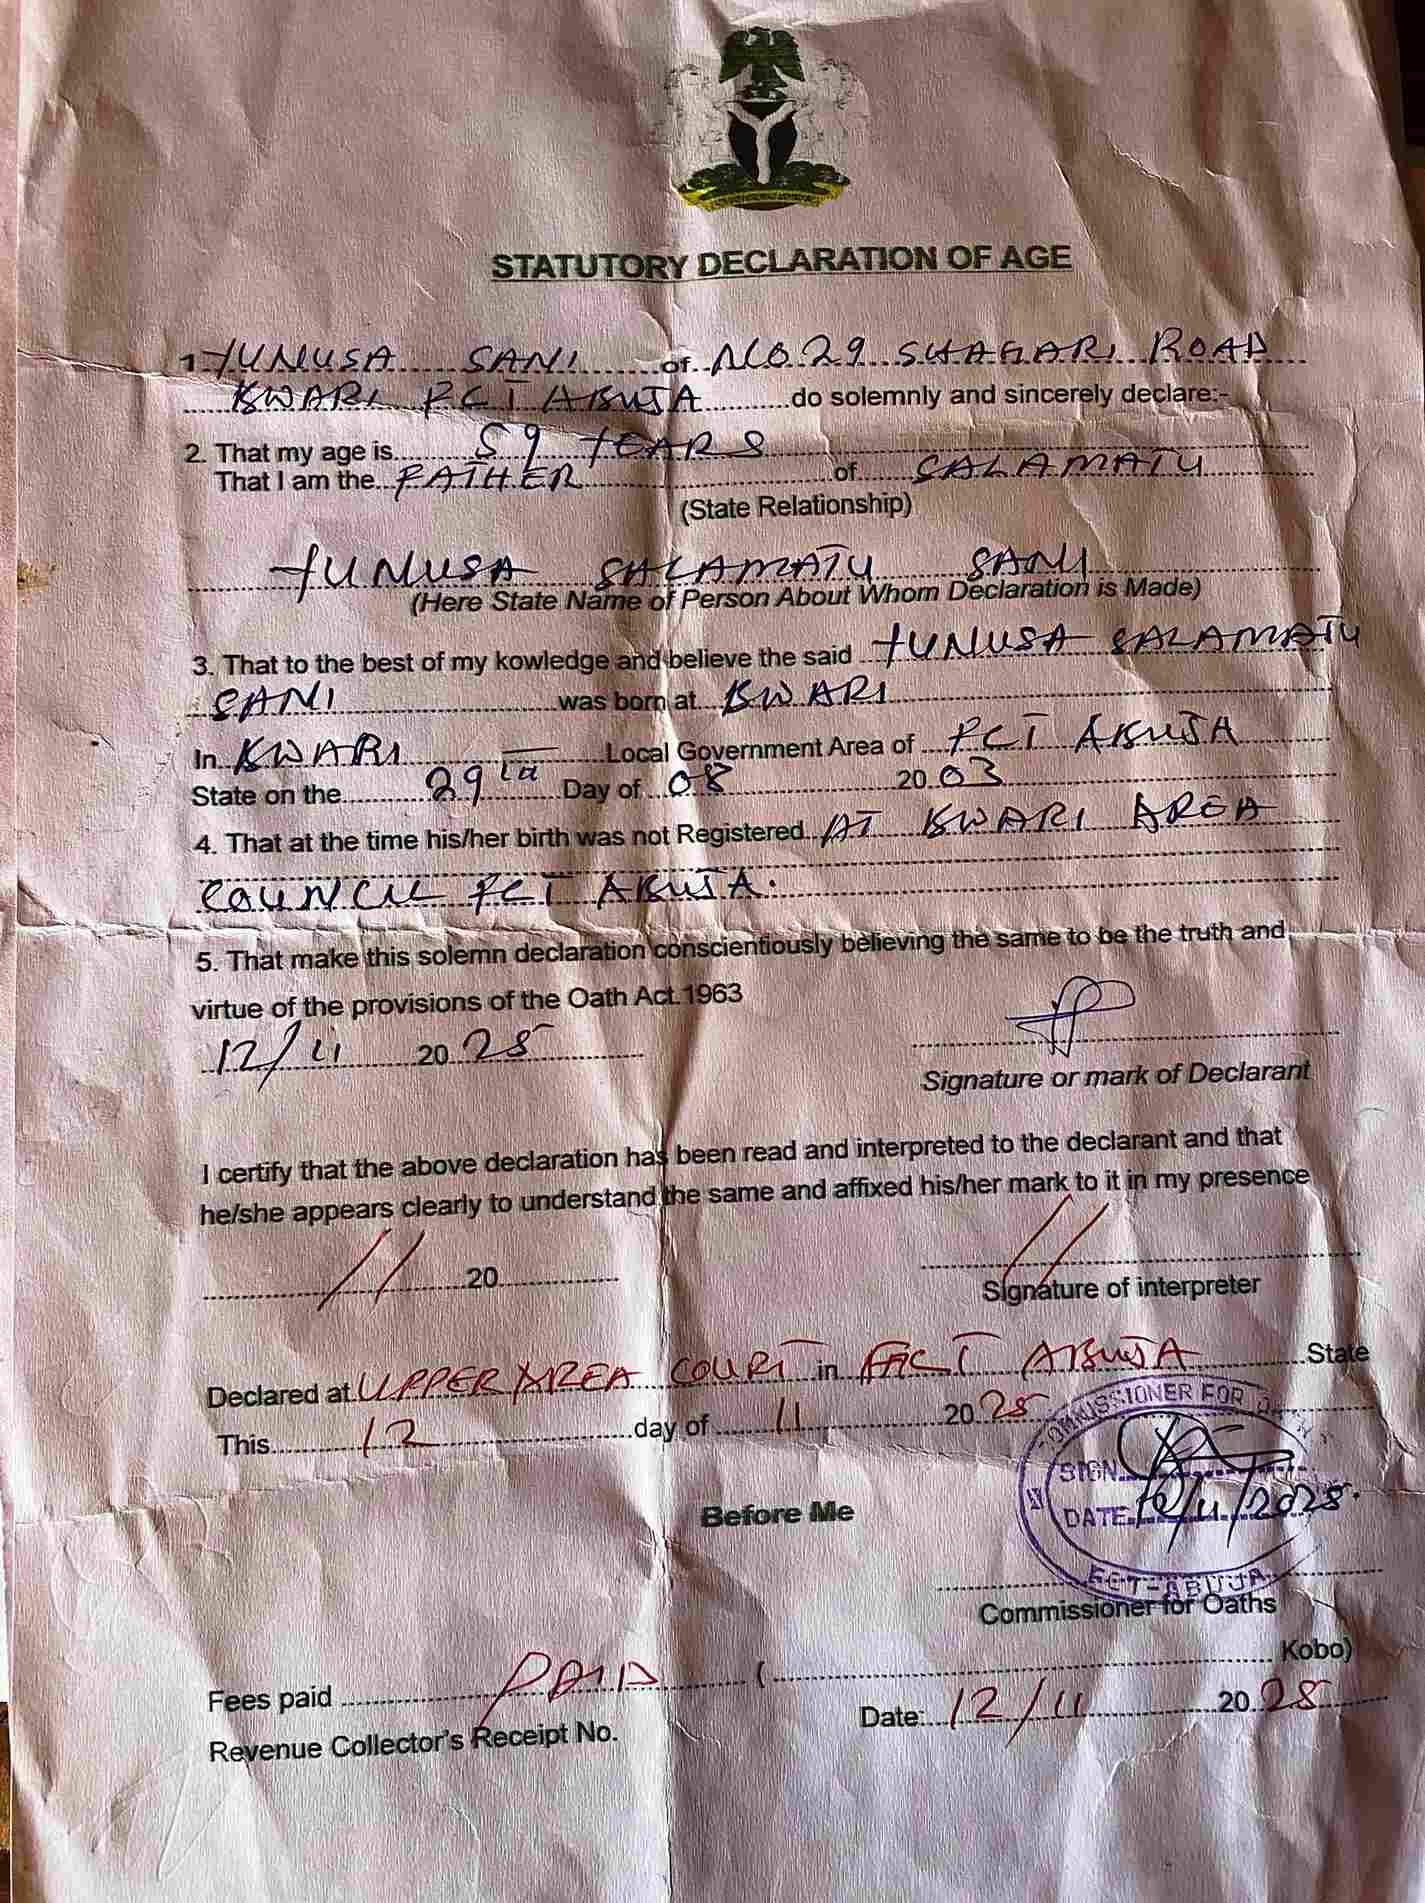 STATUTORY DECLARATION OF AGE
1 YUNUSA SANI of NO. 29 SHAGARI ROAD
KWARI FCT ABUJA do solemnly and sincerely declare:-
2. That my age is 59 YEARS
That I am the FATHER of SALAMATU
(State Relationship)
YUNUSA SALAMATU SANI
(Here State Name of Person About Whom Declaration is Made)
3. That to the best of my kowledge and believe the said YUNUSA SALAMATU
SANI was born at KWARI
In KWARI Local Government Area of FCT ABUJA
State on the 29th Day of 08 20 03
4. That at the time his/her birth was not Registered AT KWARI AREA
COUNCIL FCT ABUJA.
5. That make this solemn declaration conscientiously believing the same to be the truth and
virtue of the provisions of the Oath Act.1963
12/11 20 25
Signature or mark of Declarant
I certify that the above declaration has been read and interpreted to the declarant and that
he/she appears clearly to understand the same and affixed his/her mark to it in my presence
// 20 //
Signature of interpreter
Declared at UPPER AREA COURT in FCT ABUJA State
This 12 day of 11 20 25
COMMISSIONER FOR
SIGN
Before Me
DATE 12/11/2025.
FCT-ABUJA
Commissioner for Oaths
Fees paid PAID ( Kobo)
Revenue Collector's Receipt No. Date: 12/11 20 25